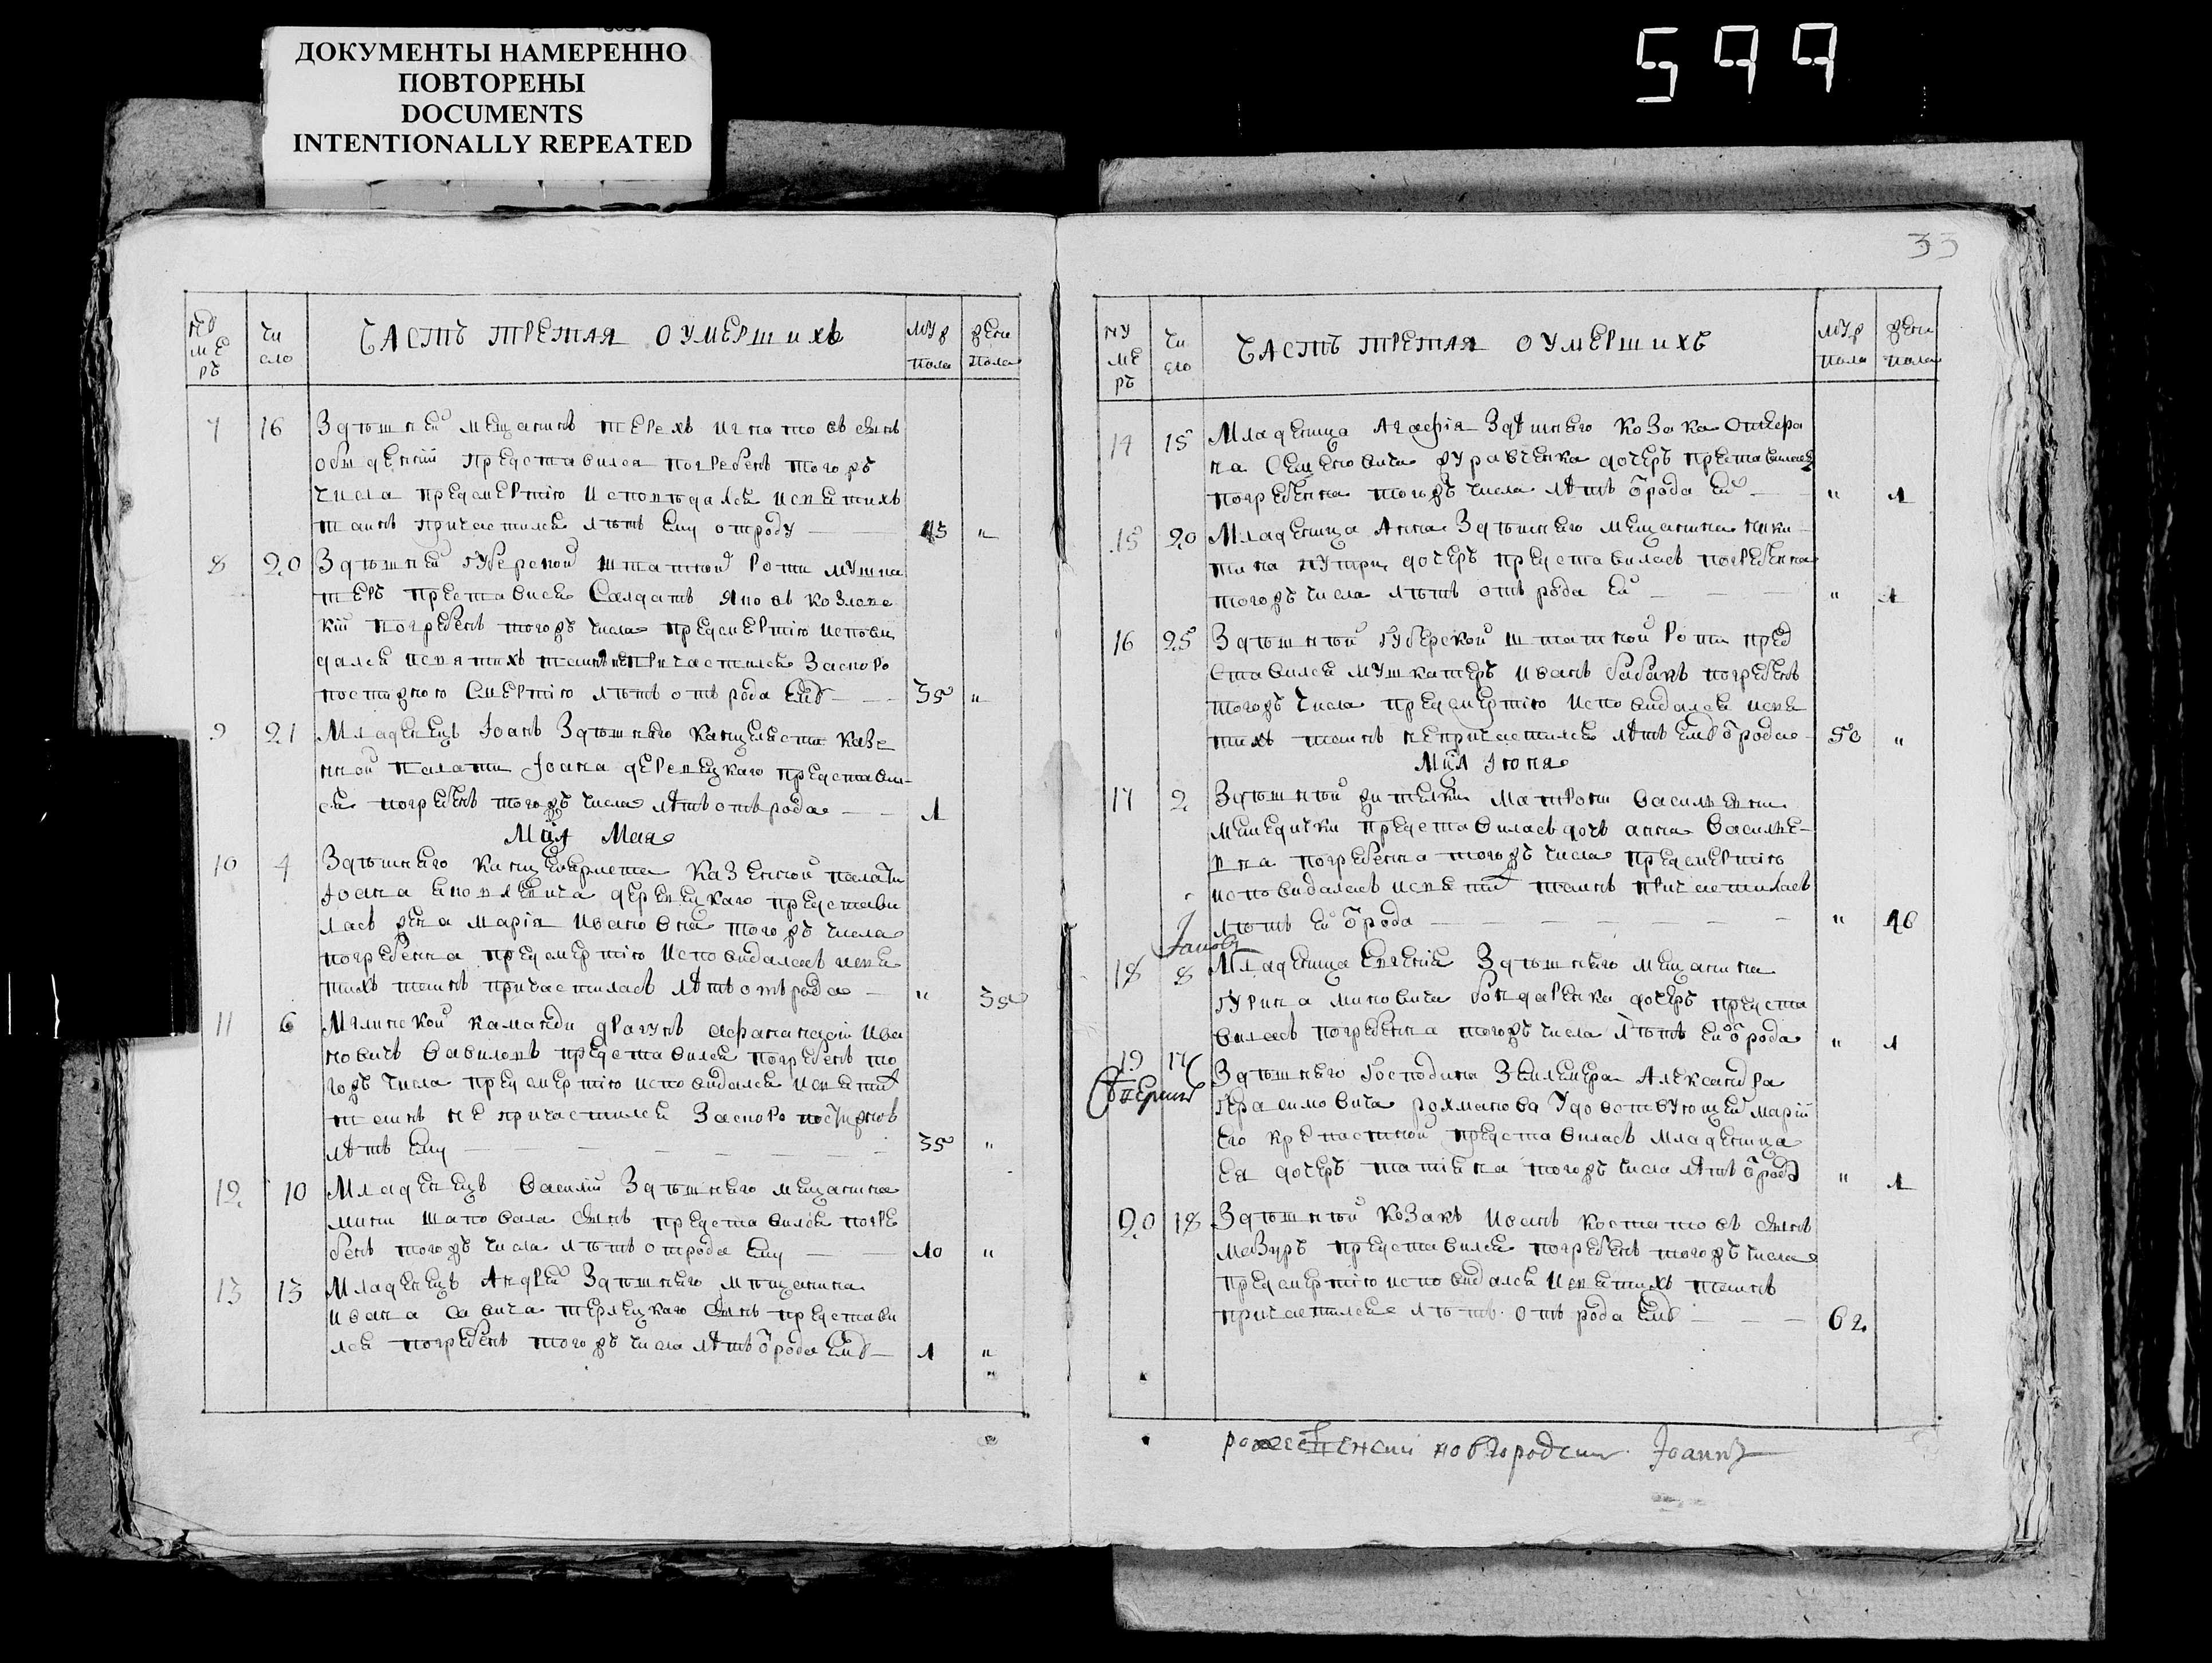 ДОКУМЕНТЫ НАМЕРЕННО
ПОВТОРЕНЫ
DOCUMENTS
INTENTIONALLY REPEATED
599
33
НУ МЕ РЪ
Чи сло
ЧАСТЬ ТРЕТАЯ ОУМЕРШИХЪ
Муж Пола
Жен Пола
7 16 Здѣшней мещанинъ Терехъ Игнатовъ сынъ
преставился погребенъ тогожъ
числа предсмертію исповѣдался искетихъ
таинъ причастился лѣтъ ему отроду 45 "
8 20 Здѣшней губерской штатной роти мушка
теръ преставися Салдатъ Яковъ Козловс
кій погребенъ тогожъ числа предсмертію испови
дался исвятихъ таинъ непричастился заскоро
постижною смертію лѣтъ отъ рода ему 35 "
9 21 Младенецъ Іоанъ Здѣшнего канцелиста казе
нной палати Іоана Деревецкаго представил
ся погребенъ тогожъ числа лѣтъ отъ рода 1
Мця Мая
10 4 Здѣшнего канцеляриста казенной палати
Іоана Деревецкаго представи
лась жена Марія Ивановна тогожъ числа
погребенна предсмертію исповидалась исвя
тихъ таинъ причастилась лѣтъ отъ рода " 30
11 6 Мглинской команди драгунъ Афанандий Ива
новичъ Вавиловъ представился погребенъ то
гожъ числа предсмертію исповидался исвятих
таинъ не причастился заскоро постижнов
лѣтъ ему 35 "
12 10 Младенецъ Василій Здѣшнего мещанина
мини Шаповала сынъ представился погре
бенъ тогожъ числа лѣтъ отрода ему 10 "
13 13 Младенецъ Андрей Здѣшнего мѣщанина
Ивана Савича Терлецкаго сынъ представи
лся погребенъ тогожъ числа лѣтъ ѿ рода ему 1 "
НУ МЕ РЪ
Чи сло
ЧАСТЬ ТРЕТАЯ ОУМЕРШИХЪ
Муж Пола
Жен Пола
14 15 Младеница Агафія Здѣшнего козака
на Семеновича Журавченка дочеръ преставилась
погребенна тогожъ числа лѣтъ ѿ рода ей " 1
15 20 Младеница Анна Здѣшнего мещанина Ники
тина дочеръ представилась погребенна
тогожъ числа лѣтъ отъ рода ей " 1
16 25 Здѣшной губерской штатной роти пред
ставился мушкатеръ Иванъ Бабакъ погребенъ
тогожъ числа предсмертію исповидался исвя
тихъ таинъ непричастился лѣтъ ему ѿ рода 50 "
Мця Іюня
17 2 Здѣшной жителки Матрони Василевни
представилась дочъ Анна Василье
вна погребенна тогожъ числа предсмертію
исповидалась исвятих таинъ причастилась
лѣтъ ей ѿ рода " 46
18 8 Младеница Евгенія Здѣшнего мещанина
Гурина Миновича Бондаренка дочеръ предста
вилась погребенна тогожъ числа лѣтъ ей ѿ рода " 1
19 17 Здѣшнего Господина Александра
Герасимовича Рохманова Удовствующей Маріи
его крепастной представилась младеница
ея дочеръ Татіяна тогожъ числа лѣтъ ѿ рода " 1
20 18 Здѣшной козакъ Иванъ сынъ
Мазуръ представился погребенъ тогожъ числа
предсмертію исповидался исвятихъ таинъ
причастился лѣтъ отъ рода ему 62
рожественскій новгородскій Іоаннъ